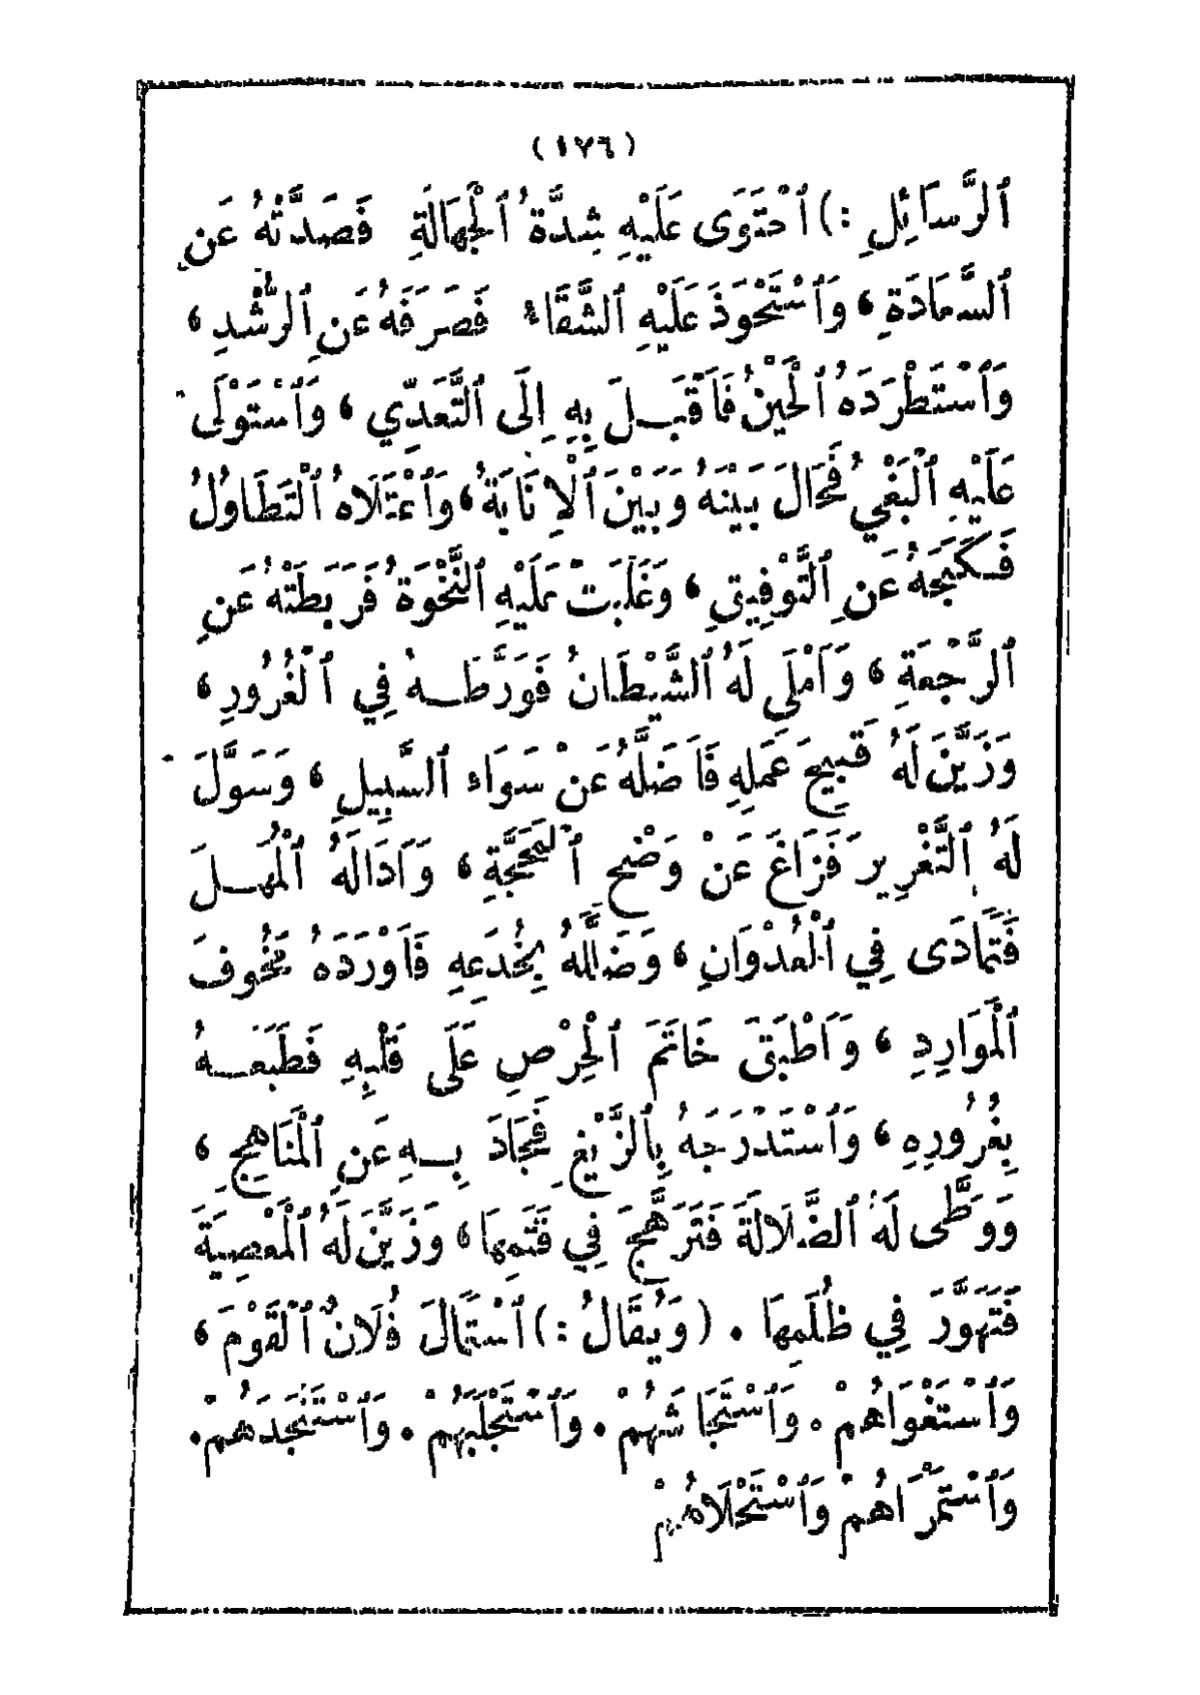 (١٧٦)
ٱلرَّسَائِلِ :) ٱحْتَوَى عَلَيْهِ شِدَّةُ ٱلْجَهَالَةِ فَصَدَّتْهُ عَنِ
ٱلسَّعَادَةِ ، وَٱسْتَحْوَذَ عَلَيْهِ ٱلشَّقَاءُ فَصَرَفَهُ عَنِ ٱلرُّشْدِ ،
وَٱسْتَطْرَدَهُ ٱلْحَيْنُ فَأَقْبَلَ بِهِ إِلَى ٱلتَّعَدِّي ، وَٱسْتَوْلَى
عَلَيْهِ ٱلْبَغْيُ فَحَالَ بَيْنَهُ وَبَيْنَ ٱلْإِنَابَةِ ، وَٱعْتَلَاهُ ٱلتَّطَاوُلُ
فَكَبَحَهُ عَنِ ٱلتَّوْفِيقِ ، وَغَلَبَتْ عَلَيْهِ ٱلنَّخْوَةُ فَرَبَطَتْهُ عَنِ
ٱلرَّجْعَةِ ، وَأَمْلَى لَهُ ٱلشَّيْطَانُ فَوَرَّطَهُ فِي ٱلْغُرُورِ ،
وَزَيَّنَ لَهُ قَبِيحَ عَمَلِهِ فَأَضَلَّهُ عَنْ سَوَاءِ ٱلسَّبِيلِ ، وَسَوَّلَ
لَهُ ٱلتَّغْرِيرَ فَزَاغَ عَنْ وَضْحِ ٱلْمَحَجَّةِ ، وَأَدَالَهُ ٱلْمَهَلَ
فَتَمَادَى فِي ٱلْعُدْوَانِ ، وَضَلَّلَهُ بِخُدَعِهِ فَأَوْرَدَهُ مَخُوفَ
ٱلْمَوَارِدِ ، وَأَطْبَقَ خَاتَمَ ٱلْحِرْصِ عَلَى قَلْبِهِ فَطَبَعَهُ
بِغُرُورِهِ ، وَٱسْتَدْرَجَهُ بِٱلزَّيْغِ فَجَادَ بِهِ عَنِ ٱلْمَنَاهِجِ ،
وَوَطَّى لَهُ ٱلضَّلَالَةَ فَتَرَهَّجَ فِي قَتَمِهَا ، وَزَيَّنَ لَهُ ٱلْمَعْصِيَةَ
فَتَهَوَّرَ فِي ظُلَمِهَا . (وَيُقَالُ :) ٱسْتَمَالَ فُلَانٌ ٱلْقَوْمَ ،
وَٱسْتَغْوَاهُمْ . وَٱسْتَجَاشَهُمْ . وَٱسْتَجْلَبَهُمْ . وَٱسْتَنْجَدَهُمْ .
وَٱسْتَمْرَاهُمْ وَٱسْتَحْلَاهُمْ